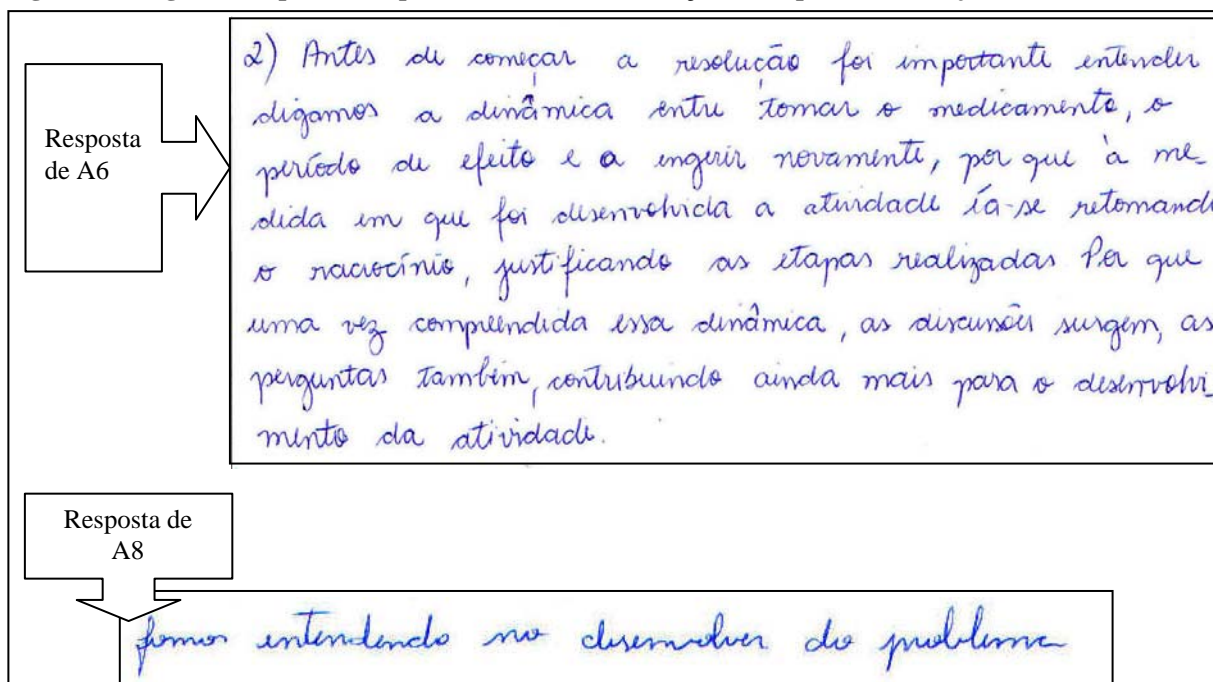 Resposta
de A6
2) Antes de começar a resolução foi importante entender
digamos a dinâmica entre tomar o medicamento, o
período de efeito e a ingerir novamente, por que à me-
dida em que foi desenvolvida a atividade ía-se retomando
o raciocínio, justificando as etapas realizadas Por que
uma vez compreendida essa dinâmica, as discussões surgem, as
perguntas também, contribuindo ainda mais para o desenvolvi-
mento da atividade.
Resposta de
A8
fomos entendendo no desenvolver do problema